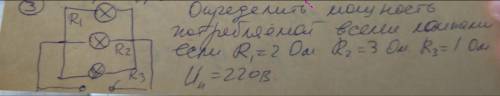 3
R₁
R₂
R₃
Определить мощность
потребляемой всеми лампами
если R₁=2 Ом R₂=3 Ом R₃=1 Ом
Uн=220В.